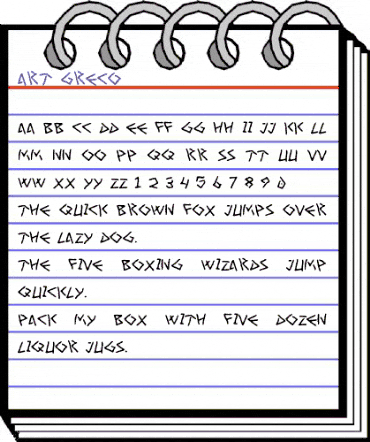 ART GRECO
AA BB CC DD EE FF GG HH II JJ KK LL
MM NN OO PP QQ RR SS TT UU VV
WW XX YY ZZ 1 2 3 4 5 6 7 8 9 0
THE QUICK BROWN FOX JUMPS OVER
THE LAZY DOG.
THE FIVE BOXING WIZARDS JUMP
QUICKLY.
PACK MY BOX WITH FIVE DOZEN
LIQUOR JUGS.